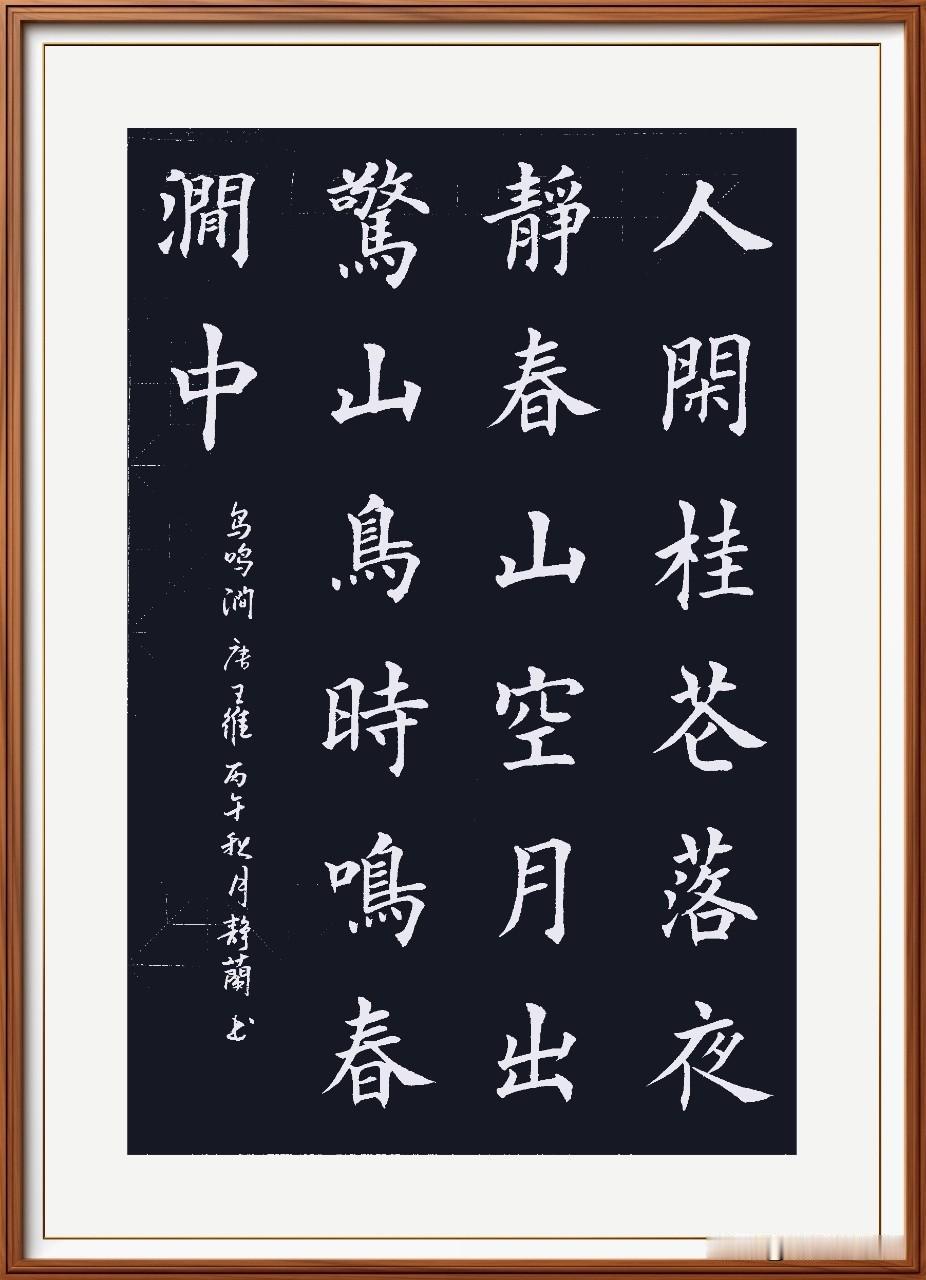 人閑桂花落夜
靜春山空月出
驚山鳥時鳴春
澗中
鸟鸣涧 唐 王維 丙午秋月靜蘭書